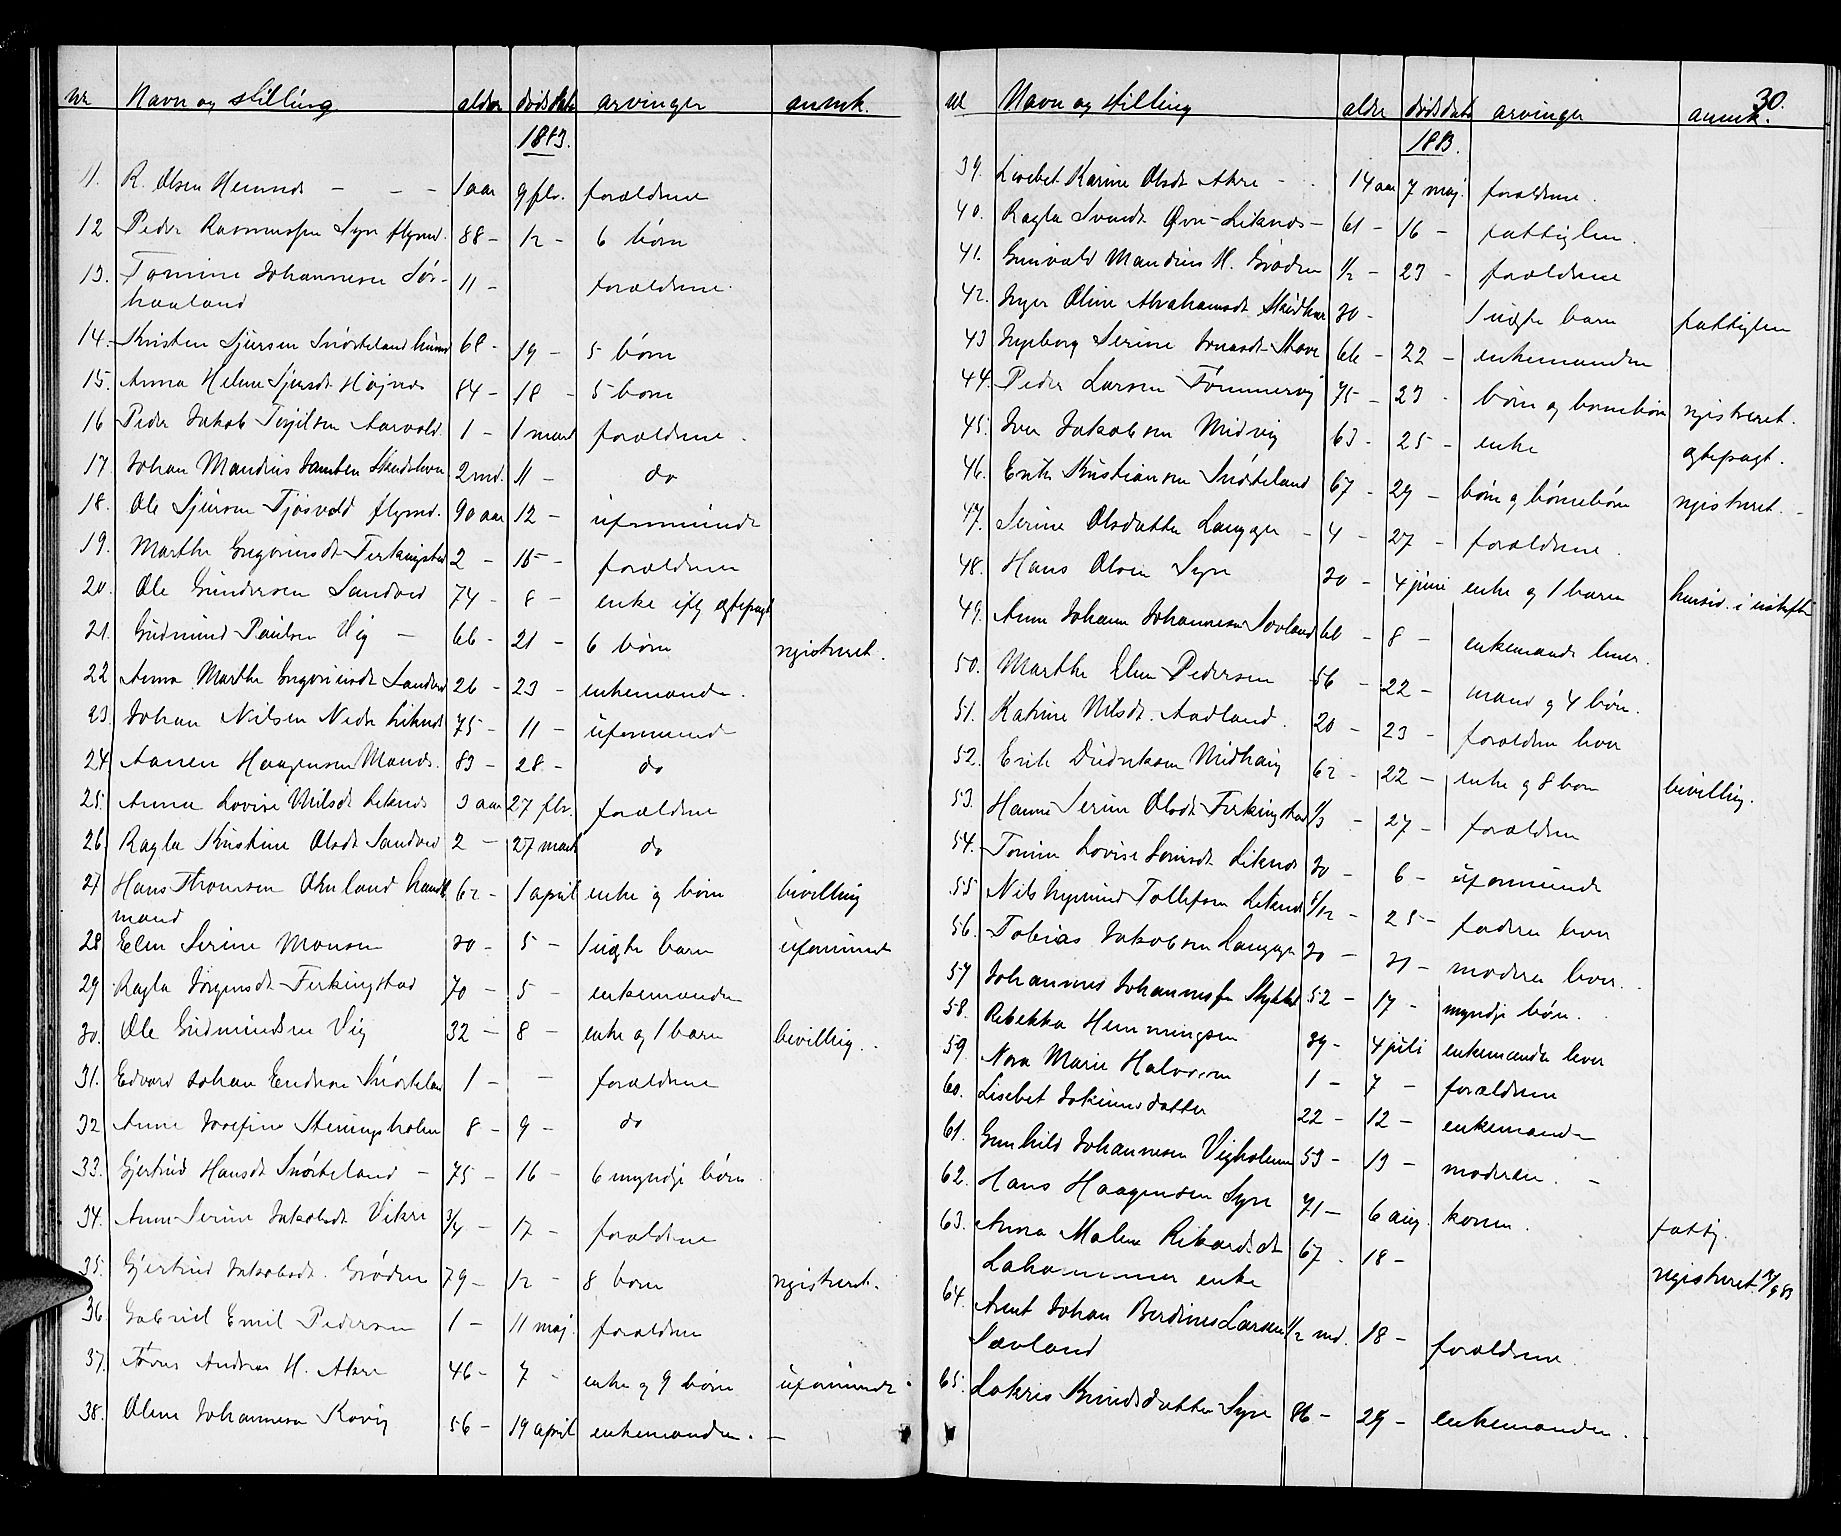 nr Navn og stilling alder dødsdato arvinger anmk.
1883.
11. R. Olsen Hemnes - - - 1 aar 9 febr. forældrene
12 Peder Rasmussen Syre flymd. 88 - 12 - 6 børn
13. Tomine Johannesen Sør- 11 - forældrene.
haaland
14. Kristen Sjursen Snørteland huusm 68 - 19 - 5 børn
15. Anna Helene Sjursdt Højnes 84 - 18 - 5 børn
16 Peder Jakob Torjilsen Aarvold. 1 - 1 mart forældrene.
17. Johan Mandius Jansen Skudehavn 2 md. 11 - do
18. Ole Sjursen Tjøsvold flymd. 90 aar 12 - uformuende
19. Marthe Gregoriusdt Ferkingstad 2 - 15 - forældrene
20. Ole Gundersen Sandved 74 - 8 - enke iflg ægtepagt
21. Gudmund Paulsen Vig - 66 - 21 - 6 børn registreret.
22 Anna Marthe Gregoriusdt Sandved 26 - 23 - enkemanden.
23. Johan Nilsen Nedre Liknes 75 - 11 - uformuend
24. Aanen Haagensen Mannes. 83 - 28 - do
25. Anna Lovise Nilsdt Liknes 3 aar 27 febr. forældrene
26. Ragla Kristine Olsdt Sandved 2 - 27 mart do
27 Hans Thomsen Øknland handls 62 - 1 april enke og børn bevilling
mand
28 Elen Serine Monsen 30 - 5 - 1 uægte barn uformuende
29 Ragla Jørgensdt Ferkingstad 70 - 5 - enkemanden
30. Ole Gudmundsen Vig 32 - 8 - enke og 1 barn bevilling.
31. Edvard Johan Endresen Snørteland 1 - - forældrene
32 Anne Josefine Steiningsholm 8 - 9 - do
33. Gjertrud Hansdt Snørteland - 75 - 16 - 6 myndige børn
34. Anne Serine Jakobsdt Vikre 3/4 - 17 - forældrene
35. Gjertrud Jakobsdt. Grødem 79 - 12 - 8 børn registreret.
36. Gabriel Emil Pedersen 1 - 11 maj. forældrene
37. Tørres Andreas H. Akre 46 - 7 - enke og 9 børn uformuende
38. Oline Johannesen Kovig 56 - 19 april enkemanden. -
30.
nr Navn og stilling alder dødsdato arvinger anmk.
1883.
39. Lisebet Karine Olsdt Akre - 14 aar 7 maj. forældrene.
40. Ragla Svendt Øvre-Liknes - 61 - 16 - fattiglem.
41. Gunvald Mandius H. Grødem 1/2 - 23 - forældrene
42. Inger Oline Abrahamsdt Skudehavn 30 - 1 uægte barn fattiglem
43 Ingeborg Serine Svendt Stava 66 - 22 - enkemanden
44. Peder Larsen Tømmervig 75 - 23 - børn og børnebørn registreret.
45. Iver Jakobsen Midvig 63 - 25 - enke ægtepagt.
46. Erik Kristiansen Snørteland 67 - 29 - børn og børnebørn registreret.
47. Serine Olsdatter Langager - 4 - 27 - forældrene.
48. Hans Olsen Syre 30 - 4 juni enke og 1 barn hensid. i uskifte
49. Anne Johanne Johannesen Sævland 60 - 8 - enkemanden lever.
50. Marthe Elen Pedersen 56 - 22 - mand og 4 børn.
51. Katrine Nilsdt. Aadland. 20 - 23 - forældrene lever
52. Erik Didriksen Midhaug 62 - 22 - enke og 8 børn bevilling.
53. Hanne Serine Olsdt Ferkingstad 1/3 - 27 - forældrene
54. Tomine Lovise Tomsdt Liknes 30 - 6 - uformuende
55 Nils Ingmund Tollefsen Liknes 5/12 - 25 - faderen lever
56. Tobias Jakobsen Langager 30 - 31 - moderen lever.
57 Johannes Johannesen Stykket 52 - 17 - myndige børn.
58. Rebekka Hemmingsen 39 - 4 juli enkemanden lever
59. Nora Marie Halvorsen 1 - 7 - forældrene
60. Lisebet Jokumsdatter 22 - 12 - enkemanden
61. Gunhild Johannesen Vigholmen 53 - 13 - moderen. -
62. Hans Haagensen Syre 71 - 6 aug. konen. fattig.
63. Anna Malene Rikardsdt 67 - 18 - registreret 12/9 83
Lahammer enke
64. Arent Johan Berdines Larsen 1/2 md. 18 - forældrene.
Sævland
65. Lakris Knudsdatter Syre 86 - 29 - enkemanden.